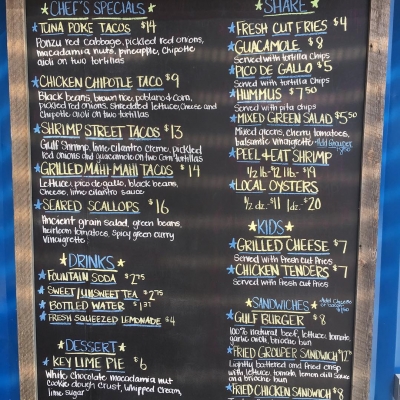 CHEF'S SPECIALS
TUNA POKE TACOS $14
Ponzu red cabbage, pickled red onions,
macadamia nuts, pineapple, chipotle
aioli on two tortillas
CHICKEN CHIPOTLE TACO $9
Black beans, brown rice, poblano & corn,
pickled red onions, shredded lettuce, cheese and
chipotle aioli on two tortillas
SHRIMP STREET TACOS $13
Gulf Shrimp, lime cilantro creme, pickled
red onions and guacamole on two corn tortillas
GRILLED MAHI MAHI TACOS $14
Lettuce, pico de gallo, black beans,
cheese, lime cilantro sauce
SEARED SCALLOPS $16
Ancient grain salad, green beans,
heirloom tomatoes, spicy green curry
vinaigrette
DRINKS
FOUNTAIN SODA $2.75
SWEET/UNSWEET TEA $2.75
BOTTLED WATER
FRESH SQUEEZED LEMONADE $4
DESSERT
KEY LIME PIE $6
White chocolate macadamia nut
cookie dough crust, whipped cream,
lime sugar
SHARE
FRESH CUT FRIES $4
GUACAMOLE $8
Served with tortilla chips
PICO DE GALLO $5
Served with tortilla chips
HUMMUS $7.50
Served with pita chips
MIXED GREEN SALAD $5.50
Mixed greens, cherry tomatoes,
balsamic vinaigrette Add Grouper
PEEL & EAT SHRIMP
1/2 lb. $12 1 lb. $19
LOCAL OYSTERS
1/2 dz. $11 1 dz. $20
KIDS
GRILLED CHEESE $7
Served with fresh cut fries
CHICKEN TENDERS $7
Served with fresh cut fries
SANDWICHES Add Cheese
GULF BURGER $8
100% natural beef, lettuce, tomato,
garlic aioli, brioche bun
FRIED GROUPER SANDWICH
Lightly battered and fried crisp
with lettuce, tomato, lemon dill sauce
on a brioche bun
FRIED CHICKEN SANDWICH $8